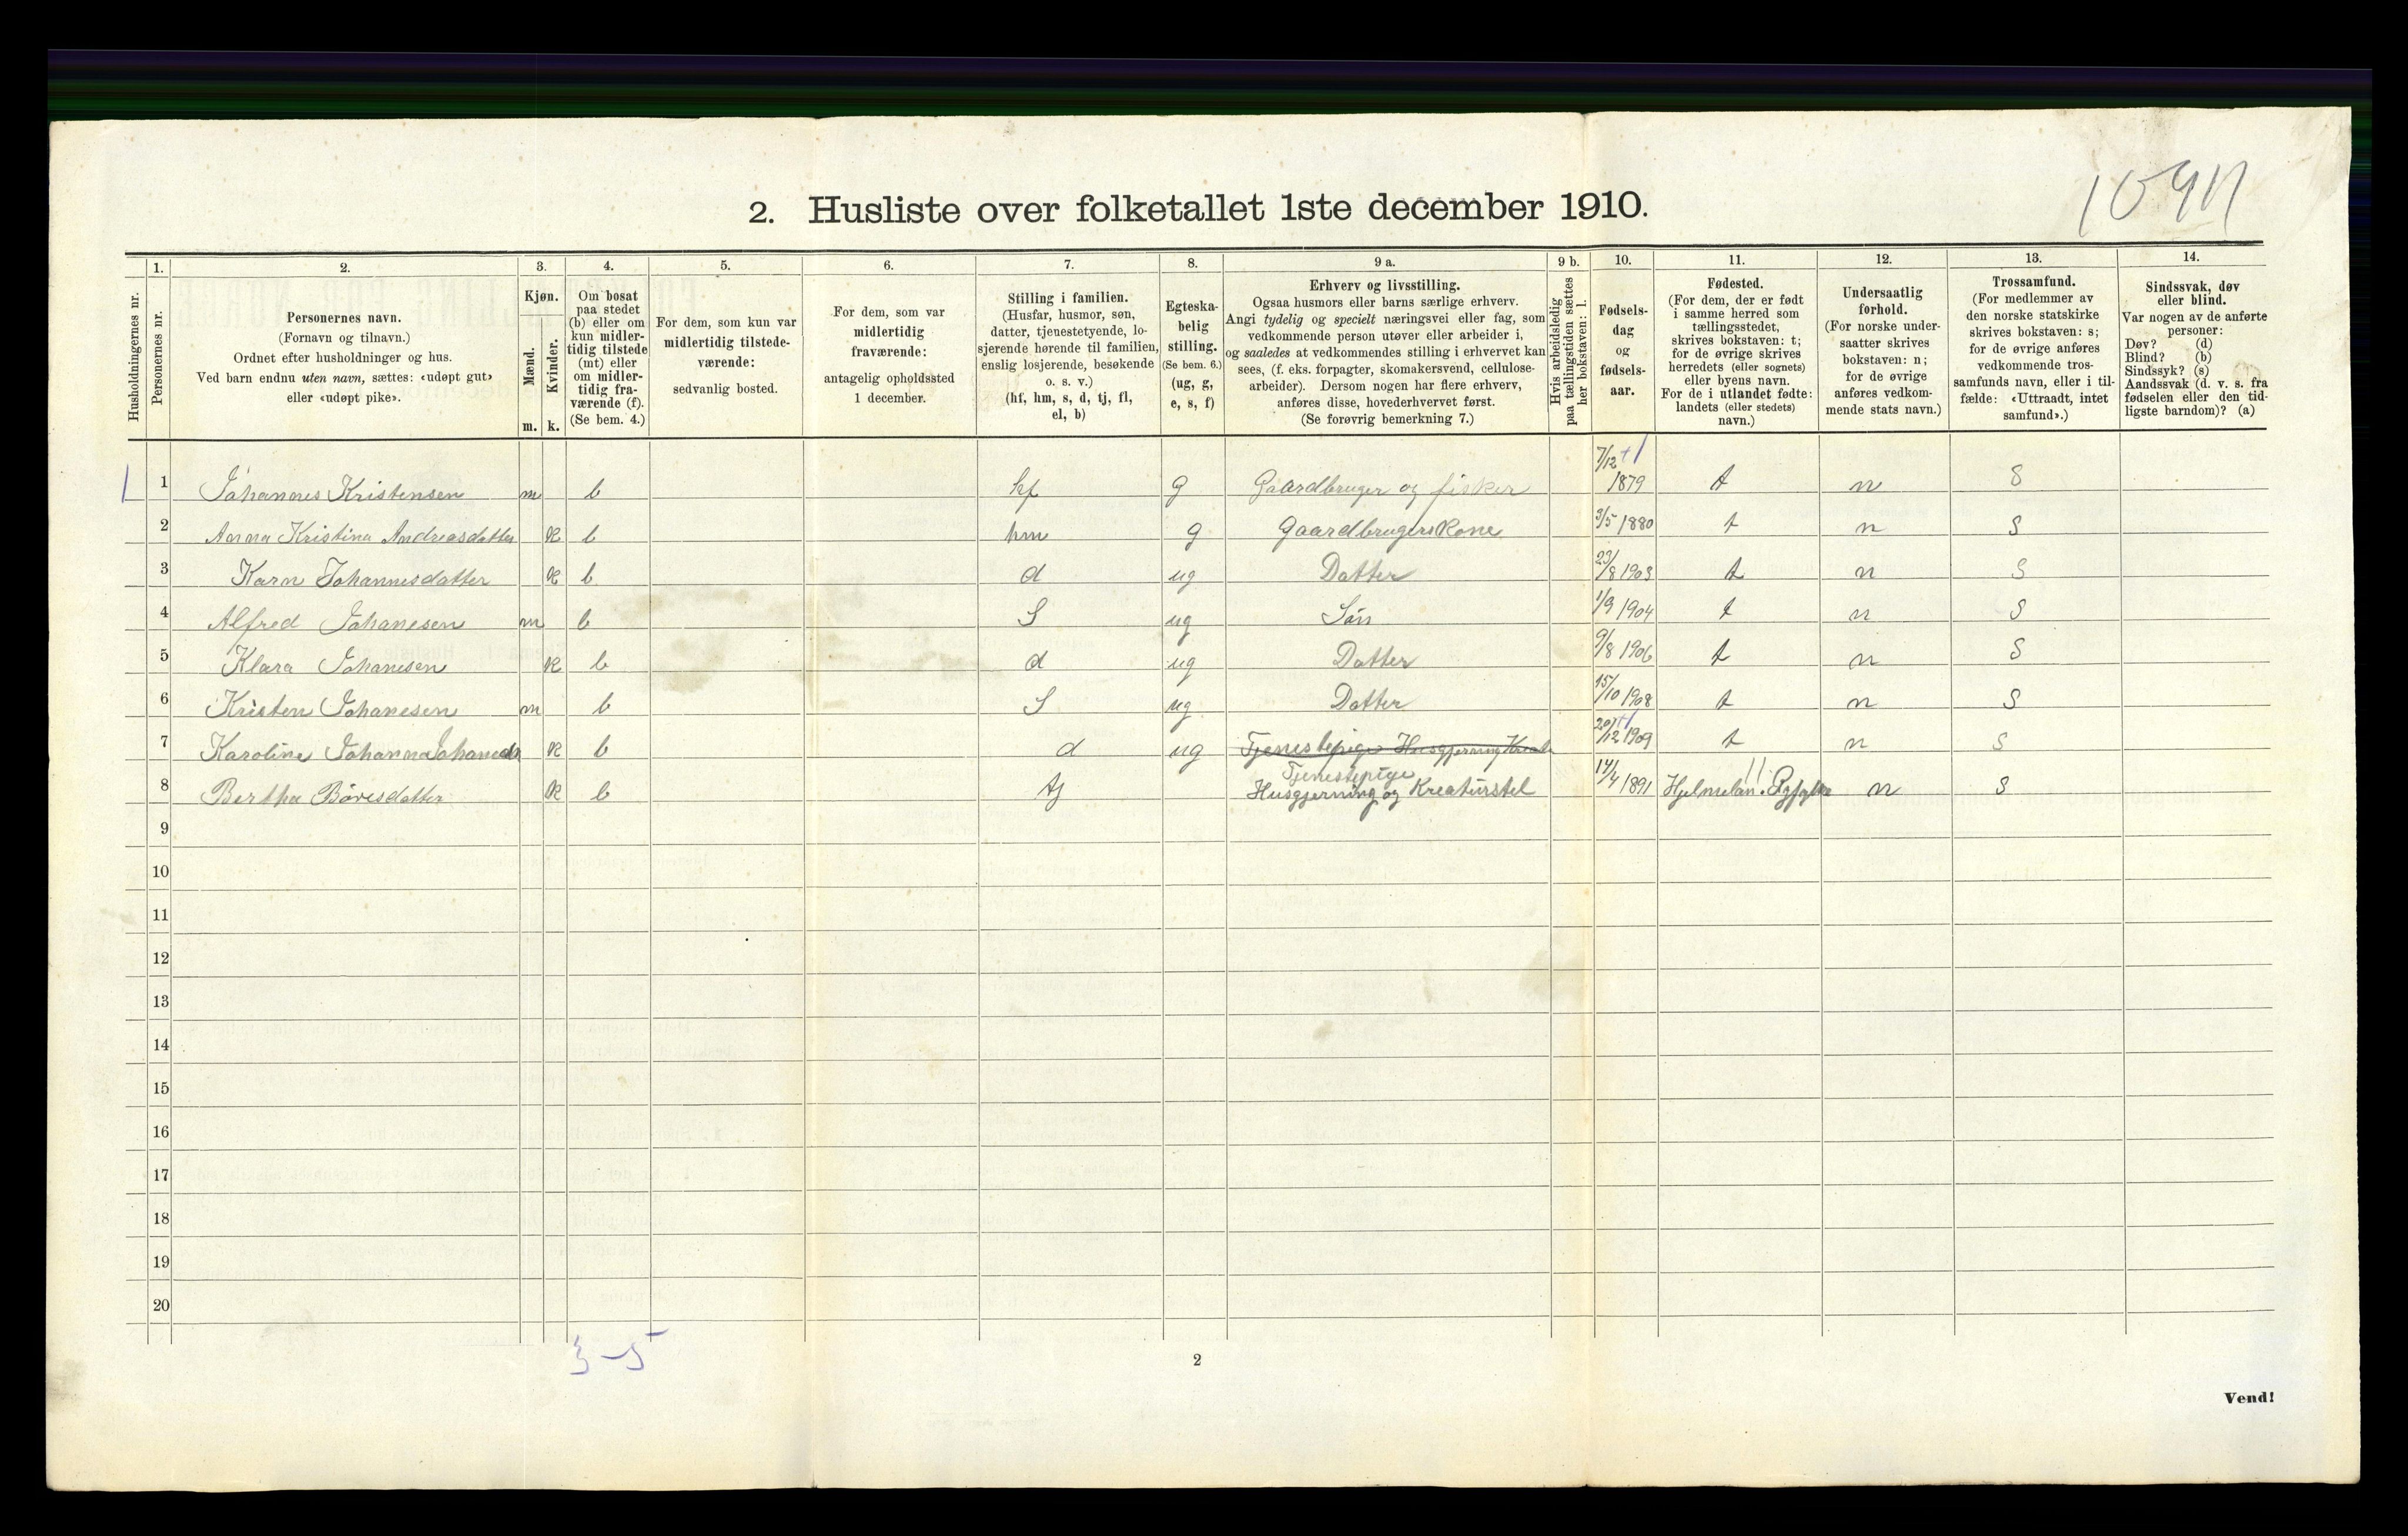 1091
2. Husliste over folketallet 1ste december 1910.
Husholdningernes nr.
1. Personernes nr.
2. Personernes navn.
(Fornavn og tilnavn.)
Ordnet efter husholdninger og hus.
Ved barn endnu uten navn, sættes: «udøpt gut»
eller «udøpt pike».
3. Kjøn.
Mænd. m.
Kvinder. k.
4. Om bosat
paa stedet
(b) eller om
kun midler-
tidig tilstede
(mt) eller
om midler-
tidig fra-
værende (f).
(Se bem. 4.)
5. For dem, som kun var
midlertidig tilstede-
værende:
sedvanlig bosted.
6. For dem, som var
midlertidig
fraværende:
antagelig opholdssted
1 december.
7. Stilling i familien.
(Husfar, husmor, søn,
datter, tjenestetyende, lo-
sjerende hørende til familien,
enslig losjerende, besøkende
o. s. v.)
(hf, hm, s, d, tj, fl,
el, b)
8. Egteska-
belig
stilling.
(Se bem. 6.)
(ug, g,
e, s, f)
9 a. Erhverv og livsstilling.
Ogsaa husmors eller barns særlige erhverv.
Angi tydelig og specielt næringsvei eller fag, som
vedkommende person utøver eller arbeider i,
og saaledes at vedkommendes stilling i erhvervet kan
sees, (f. eks. forpagter, skomakersvend, cellulose-
arbeider). Dersom nogen har flere erhverv,
anføres disse, hovederhvervet først.
(Se forøvrig bemerkning 7.)
9 b. Hvis arbeidsledig
paa tællingstiden sættes
her bokstaven: l.
10. Fødsels-
dag
og
fødsels-
aar.
11. Fødested.
(For dem, der er født
i samme herred som
tællingsstedet,
skrives bokstaven: t;
for de øvrige skrives
herredets (eller sognets)
eller byens navn.
For de i utlandet fødte:
landets (eller stedets)
navn.)
12. Undersaatlig
forhold.
(For norske under-
saatter skrives
bokstaven: n;
for de øvrige
anføres vedkom-
mende stats navn.)
13. Trossamfund.
(For medlemmer av
den norske statskirke
skrives bokstaven: s;
for de øvrige anføres
vedkommende tros-
samfunds navn, eller i til-
fælde: «Uttraadt, intet
samfund».)
14. Sindssvak, døv
eller blind.
Var nogen av de anførte
personer:
Døv? (d)
Blind? (b)
Sindssyk? (s)
Aandssvak (d. v. s. fra
fødselen eller den tid-
ligste barndom)? (a)
1 1 Johannes Kristensen m b hf g Gaardbruger og fisker 7/12 1879 t n S
2 Anna Kristina Andreasdatter k b hm g Gaardbrugerskone 3/5 1880 t n S
3 Karn Johannesdatter k b d ug Datter 23/8 1903 t n S
4 Alfred Johanesen m b S ug Sön 1/9 1904 t n S
5 Klara Johanesen k b d ug Datter 9/8 1906 t n S
6 Kristen Johanesen m b S ug Datter 15/10 1908 t n S
7 Karoline Johanna k b d ug Tjenestepige Husgjerning 20/12 1909 t n S
8 Bertha Bövesdatter k b tj Tjenestepige
Husgjerning og Kreaturstel 14/4 1891 Hjelmelan n S
9
10
11
12
13
14
15
16
17
18
19
20
3-5
2
Vend!